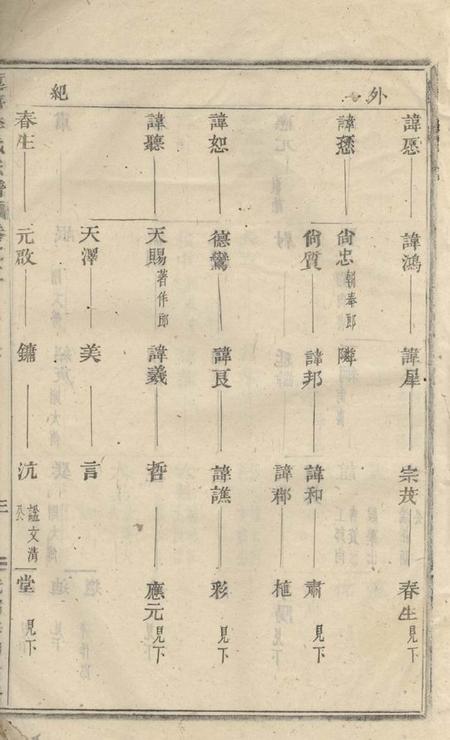 外紀
諱鴻
諱犀
宗茂
春生 見下
尙忠 朝奉郎
尙質
諱邦
諱和
肅 見下
諱鄰
植
諱恕
德鸞
諱良
諱譙
彩 見下
諱聽
天賜 著作郎
諱羲
哲
應元 見下
天澤
美
言
春生
元啟
鏞
沆 諡文清公
堂 見下